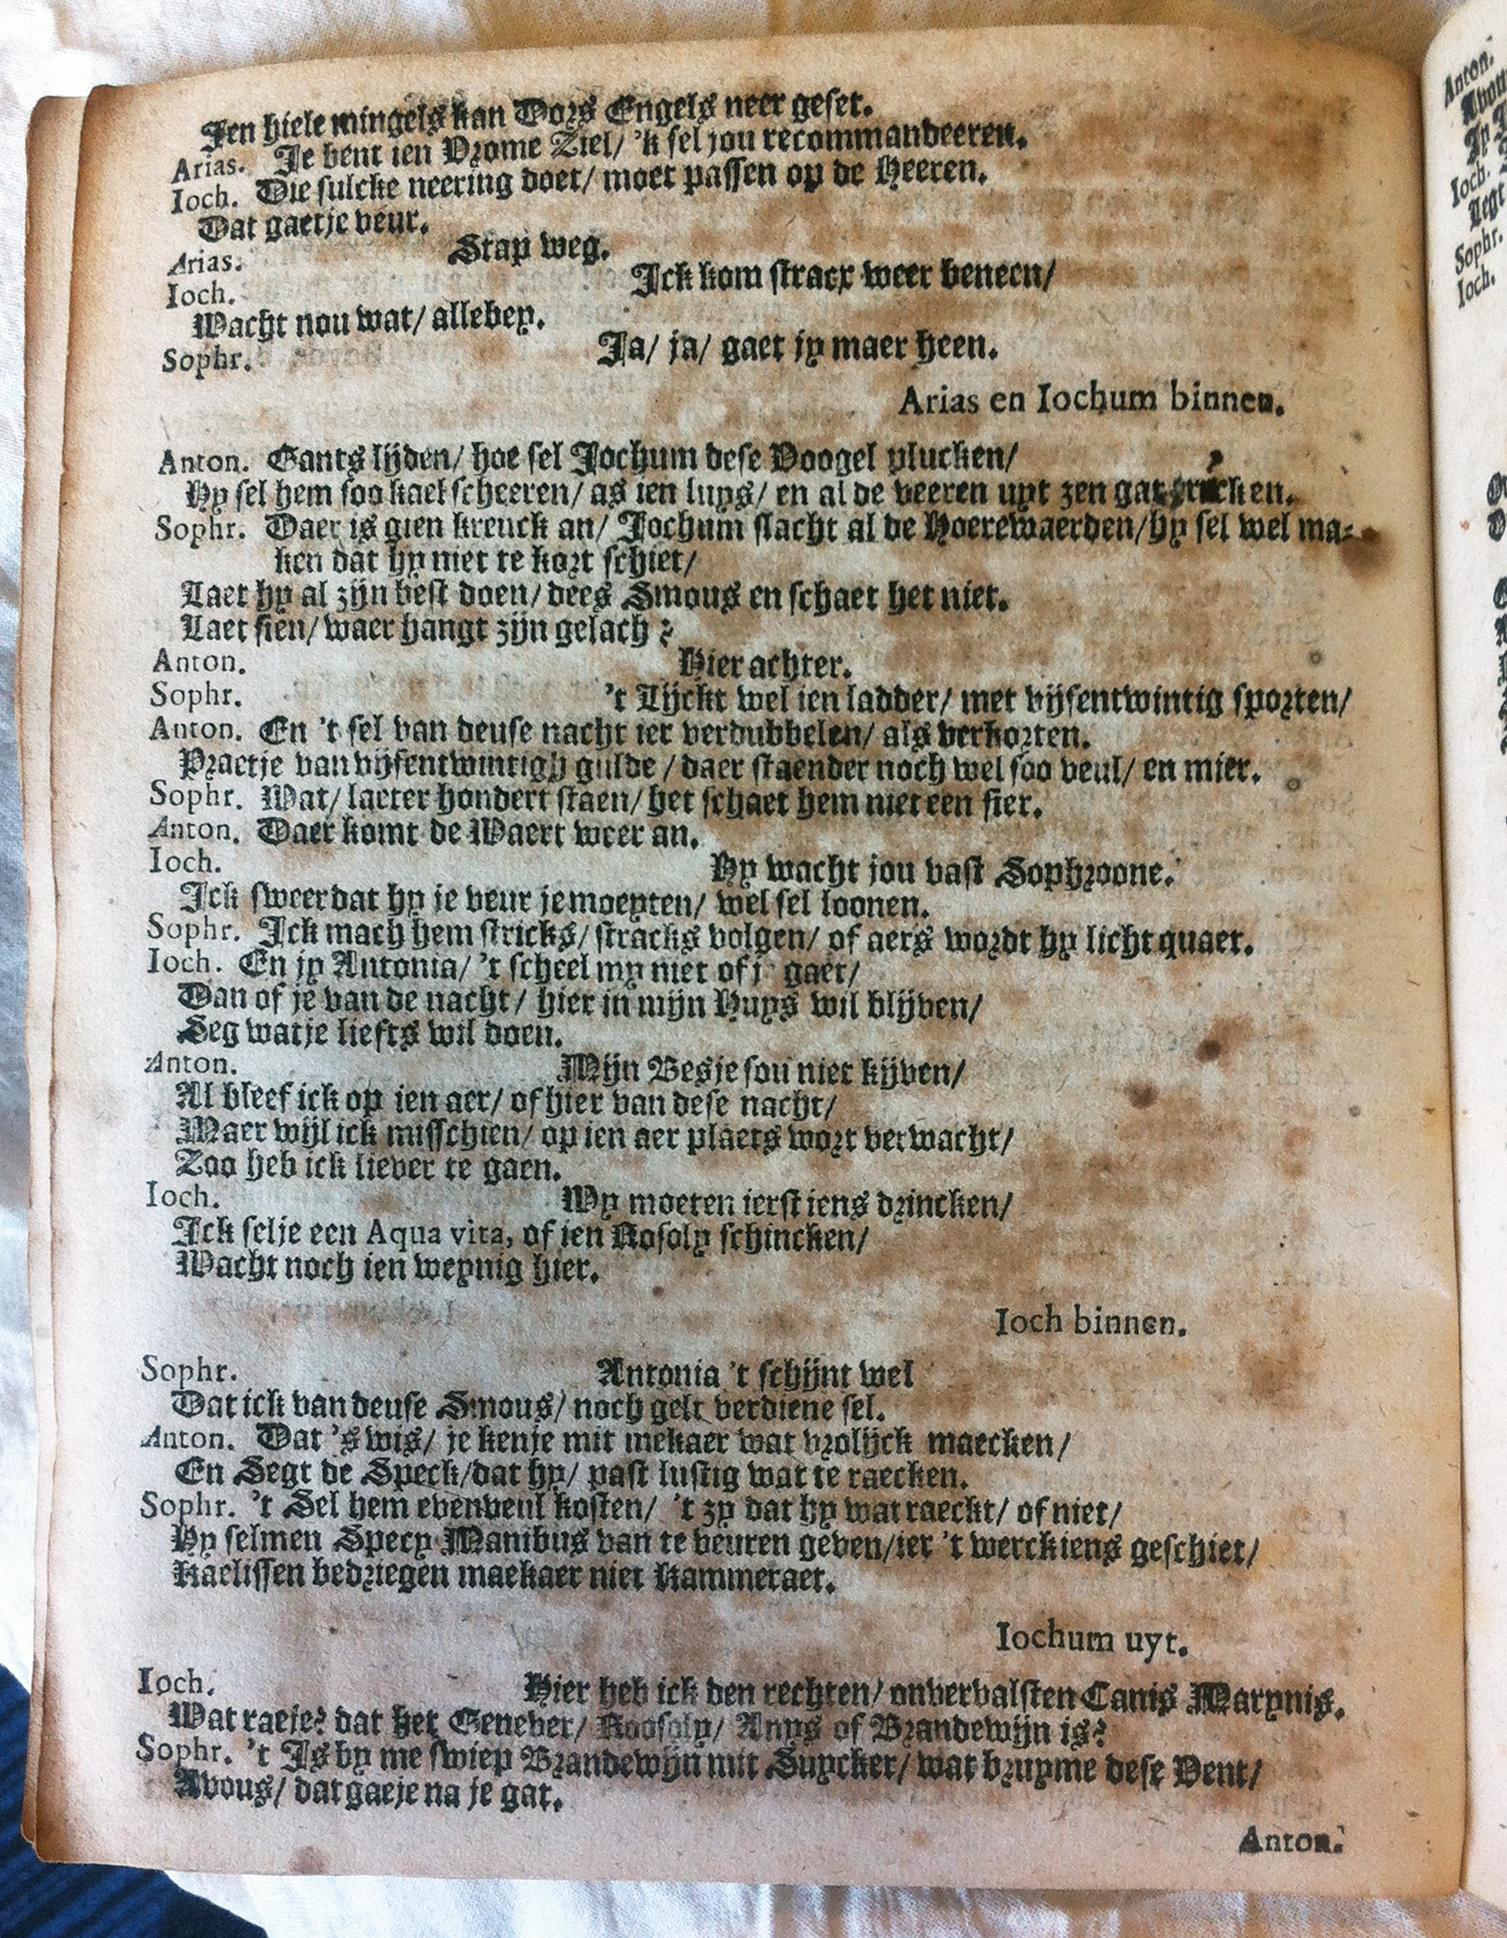 Jen hiele mingels kan Dors Engels neer geset.
Arias. Je bent ien Vrome Ziel/ 'k sel jou recommandeeren.
Ioch. Die sulcke neering doet/ moet passen op de Heeren.
Dat gaetje veur.
Arias. Stap weg.
Ioch. Ick kom stracx weer beneen/
Wacht nou wat/ allebey.
Sophr. Ja/ ja/ gaet jy maer heen.
Arias en Iochum binnen.
Anton. Gants lijden/ hoe sel Jochum dese Voogel plucken/
Hy sel hem soo kael scheeren/ as ien luys/ en al de veeren uyt zen gat
Sophr. Daer is gien kreuck an/ Jochum slacht al de Hoerewaerden/hy sel wel ma-
ken dat hy niet te kort schiet/
Laet hy al zijn best doen/ dees Smous en schaet het niet.
Laet sien/ waer hangt zijn gelach?
Anton. Hier achter.
Sophr. 't Lijckt wel ien ladder/ met vijfentwintig sporten/
Anton. En 't sel van deuse nacht iet verdubbelen/ als verkorten.
Praetje van vijfentwintigh gulde/ daer staender noch wel soo veul/ en mier.
Sophr. Wat/ laeter hondert staen/ het schaet hem niet een sier.
Anton. Daer komt de Waert weer an.
Ioch. Hy wacht jou vast Sophroone.
Ick sweer dat hy je veur je moeyten/ wel sel loonen.
Sophr. Ick mach hem stricks/ stracks volgen/ of aers wordt hy licht quaet.
Ioch. En jy Antonia/ 't scheel my niet of j gaet/
Dan of je van de nacht/ hier in mijn Huys wil blijven/
Seg watje liefts wil doen.
Anton. Mijn Besje sou niet kijven/
Al bleef ick op ien aer/ of hier van dese nacht/
Maer wijl ick misschien/ op ien aer plaets wort verwacht/
Zoo heb ick liever te gaen.
Ioch. Wy moeten ierst iens drincken/
Ick selje een Aqua vita, of ien Rosoly schincken/
Wacht noch ien weynig hier.
Ioch binnen.
Sophr. Antonia 't schijnt wel
Dat ick van deuse Smous/ noch gelt verdiene sel.
Anton. Dat 's wis/ je kenje mit mekaer wat vrolijck maecken/
En Segt de Speck/dat hy/ past lustig wat te raecken.
Sophr. 't Sel hem evenveul kosten/ 't zy dat hy wat raeckt/ of niet/
Hy selmen Specy Manibus van te veuren geven/ier 't werck iens geschiet/
Kaelissen bedriegen maekaer niet Kammeraet.
Iochum uyt.
Ioch. Hier heb ick den rechten/ onvervalsten Canis Marynis.
Wat raeje? dat het Genever/ Roosoly/ Anys of Brandewijn is?
Sophr. 't Is by me swiep Brandewijn mit Suycker/ wat bruyme dese Vent/
Avous/ dat gaeje na je gat.
Anton.
Anton.
Ioch.
Sophr.
Ioch.